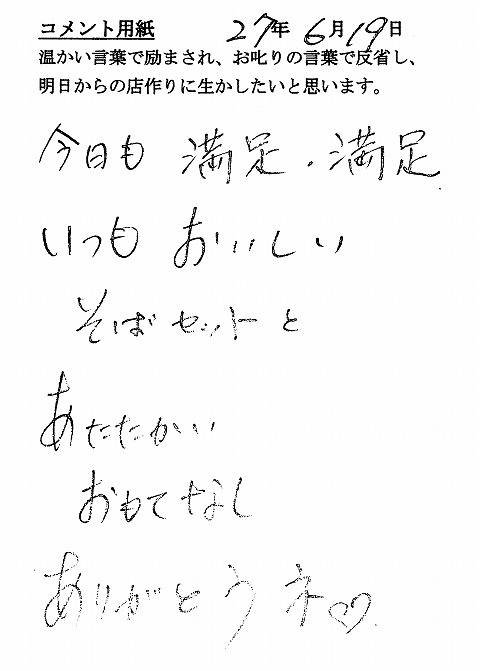 コメント用紙 27年 6月19日
温かい言葉で励まされ、お叱りの言葉で反省し、
明日からの店作りに生かしたいと思います。
今日も 満足・満足
いつも おいしい
そばセットと
あたたかい
おもてなし
ありがとうネ♡